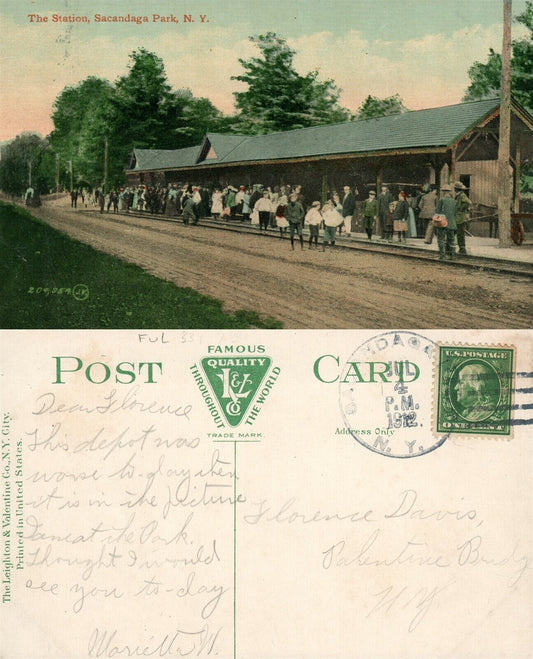 The Station, Sacandaga Park, N. Y.
204,954 JV
FUL 33
POST CARD
FAMOUS
QUALITY
THROUGHOUT THE WORLD
L&V Co
TRADE MARK.
Address Only
JUL
4
P.M.
1912.
N. Y.
U.S. POSTAGE
ONE CENT
The Leighton & Valentine Co., N.Y. City.
Printed in United States.
Dear Florence
This depot was
worse to-day then
it is in the picture
I am at the Park.
Thought I would
see you to-day
Marietta W.
Florence Davis,
Palentine Bridg
N.Y.